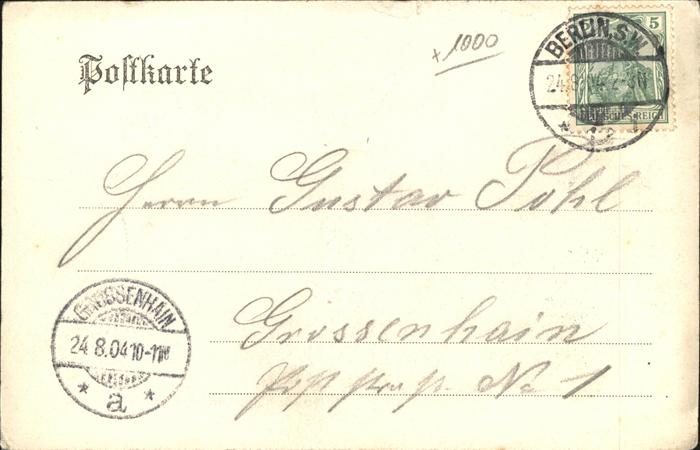 Postkarte
x 1000
5
BERLIN, S.W.
24.
DEUTSCHES REICH
Herrn Gustav Pohl
Grossenhain
Poststraß. No 1
GROSSENHAIN
24 8.04 10-11N
* a *